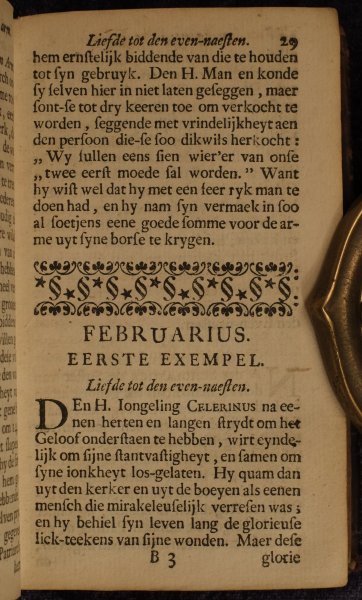 Liefde tot den even-naeſten. 29
hem ernſtelijk biddende van die te houden
tot ſyn gebruyk. Den H. Man en konde
ſy ſelven hier in niet laten geſeggen, maer
ſont-ſe tot dry keeren toe om verkocht te
worden, ſeggende met vrindelijkheyt aen
den perſoon die-ſe ſoo dikwils herkocht:
„ Wy ſullen eens ſien wier'er van onſe
„ twee eerſt moede ſal worden. " Want
hy wiſt wel dat hy met een ſeer ryk man te
doen had, en hy nam ſyn vermaek in ſoo
al ſoetjens eene goede ſomme voor de ar-
me uyt ſyne borſe te krygen.
FEBRUARIUS.
EERSTE EXEMPEL.
Liefde tot den even-naeſten.
DEn H. Iongeling CELERINUS na ee-
nen herten en langen ſtrydt om het
Geloof onderſtaen te hebben, wirt eynde-
lijk om ſijne ſtantvaſtigheyt, en ſamen om
ſyne ionkheyt los-gelaten. Hy quam dan
uyt den kerker en uyt de boeyen als eenen
menſch die mirakeleuſelijk verreſen was;
en hy behiel ſyn leven lang de glorieuſe
lick-teekens van ſijne wonden. Maer deſe
B 3 glorie